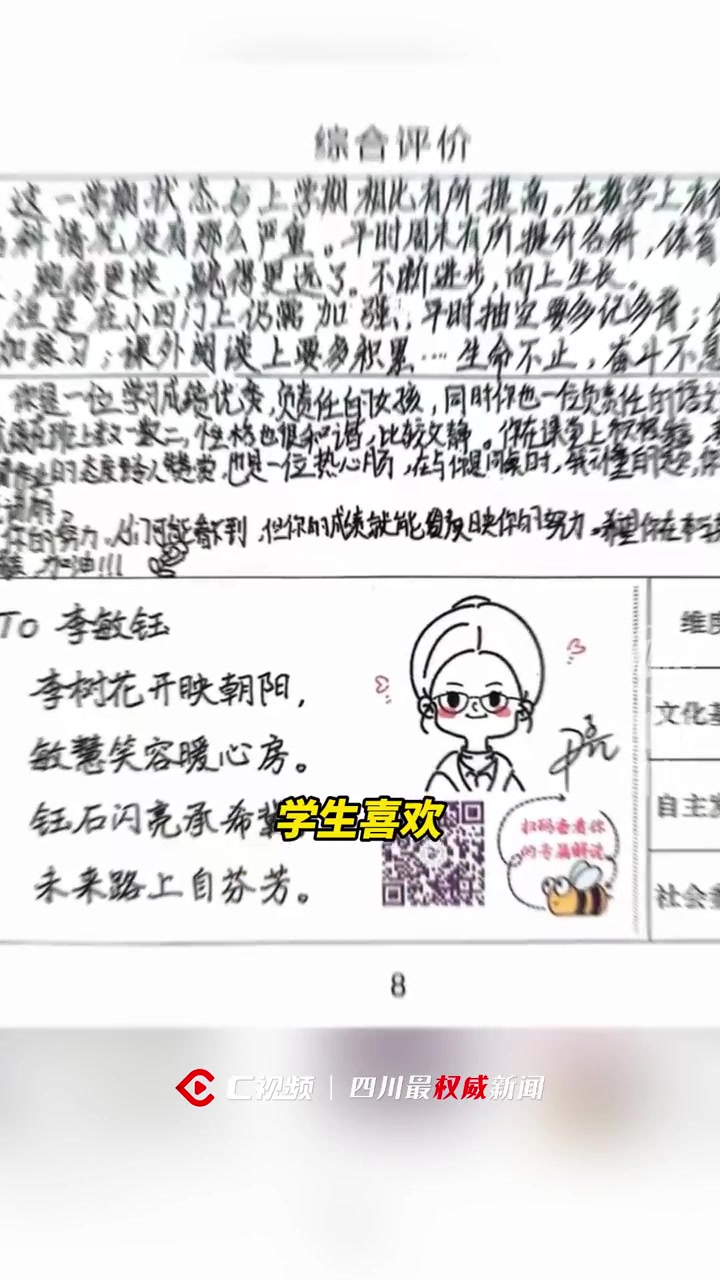 综合评价
这一学期状态与上学期相比有所提高。在数学上有
科情况没有那么严重。平时周末有所提升名科，体育
，跑得更快，跳得更远了。不断进步，向上生长。
但是在小四门上仍需加强，平时抽空要多记多背；
加练习；课外阅读上要多积累…生命不止，奋斗不息
你是一位学习成绩优秀，负责任的女孩，同时你也一位负责任的语文
成绩在班上数一数二，性格也很和谐，比较文静。你在课堂上积极
作业的态度令人赞赏，也是一位热心肠，在与你提问时，
讲解，
你的努力，人们可能看不到，但你的成绩就能反映你的努力。希望你在
加油!!!
To 李敏钰
李树花开映朝阳，
敏慧笑容暖心房。
钰石闪亮承希冀
未来路上自芬芳。
学生喜欢
扫码查看你
的专属解说
维度
文化基
自主发
社会参
8
C视频 | 四川最权威新闻